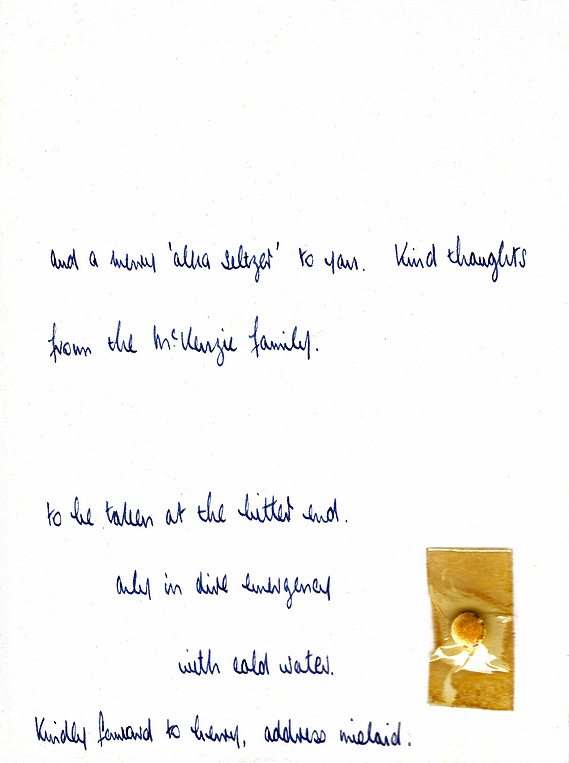 and a merry 'alka seltzer' to you. Kind thoughts
from the McKenzie family.
to be taken at the bitter end.
only in dire emergency
with cold water.
Kindly forward to henry, address mislaid.